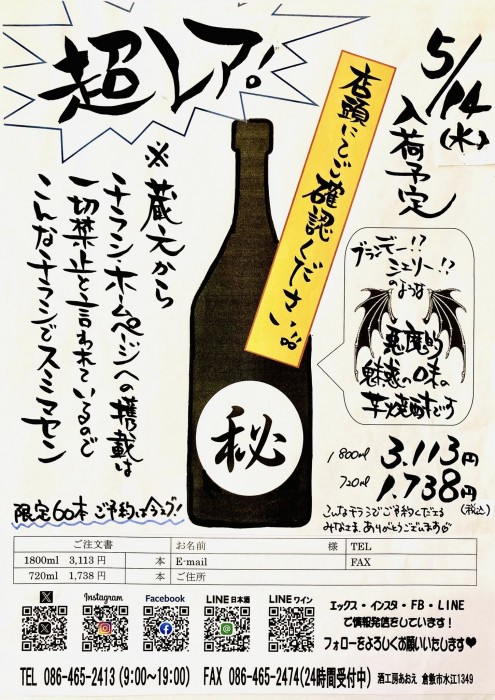 超レア!
5/14
(水)
入荷予定
店頭にてご確認ください!!。
※蔵元から
チラシ・ホームページへの掲載は
一切禁止と言われているので
こんなチラシでスミマセン
ブランデー!?
シェリー!?
のような
悪魔的
魅惑の味の
芋焼酎です
秘
1800ml 3.113円
720ml 1.738円
(税込)
こんなチラシでご予約くださる
みなさま、ありがとうございます
限定60本 ご予約は今スグ!
ご注文書 お名前 様 TEL
1800ml 3,113円 本 E-mail FAX
720ml 1,738円 本 ご住所
X Instagram Facebook LINE日本酒 LINEワイン
エックス・インスタ・FB・LINE
で情報発信をしています!
フォローをよろしくお願いいたします♥
TEL 086-465-2413 (9:00~19:00) FAX 086-465-2474(24時間受付中) 酒工房あおえ 倉敷市水江1349